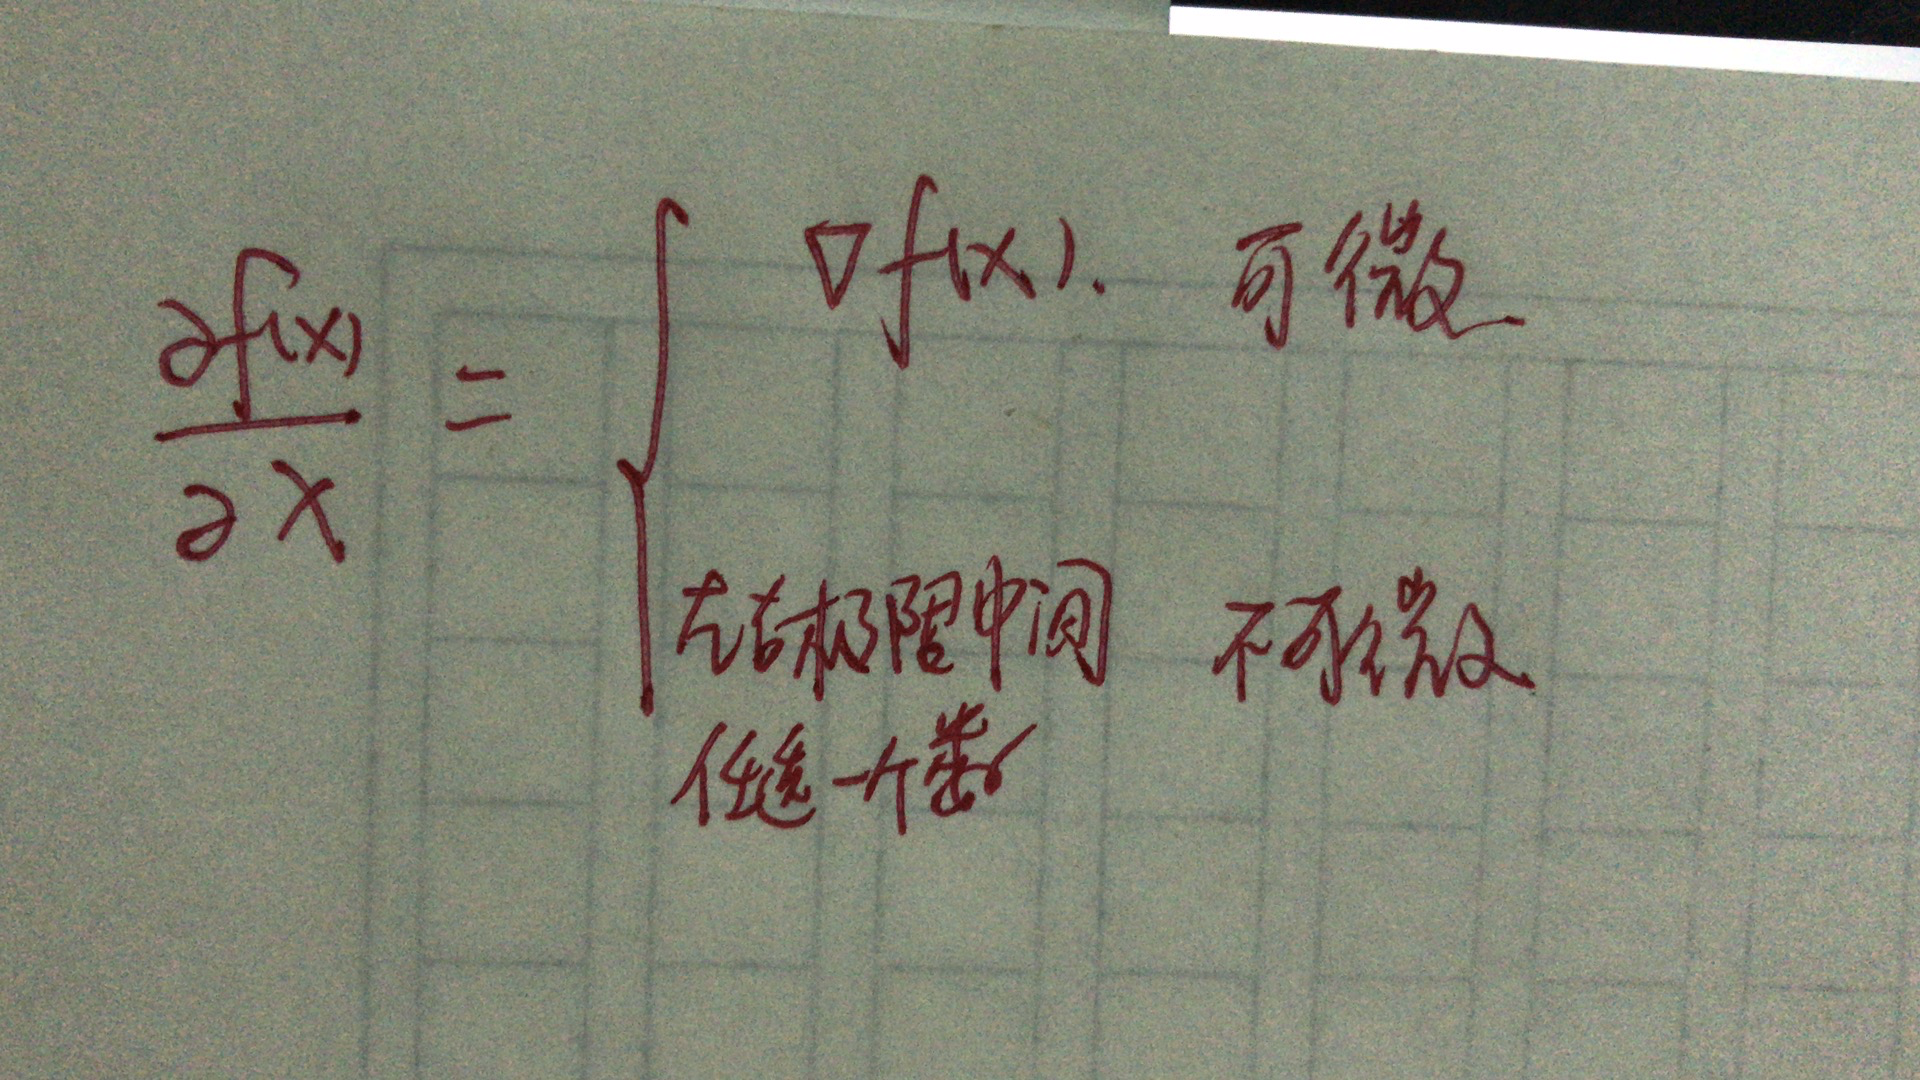 ∂f(x)/∂x = { ∇f(x). 可微
左右极限中间 不可微
任意一个数